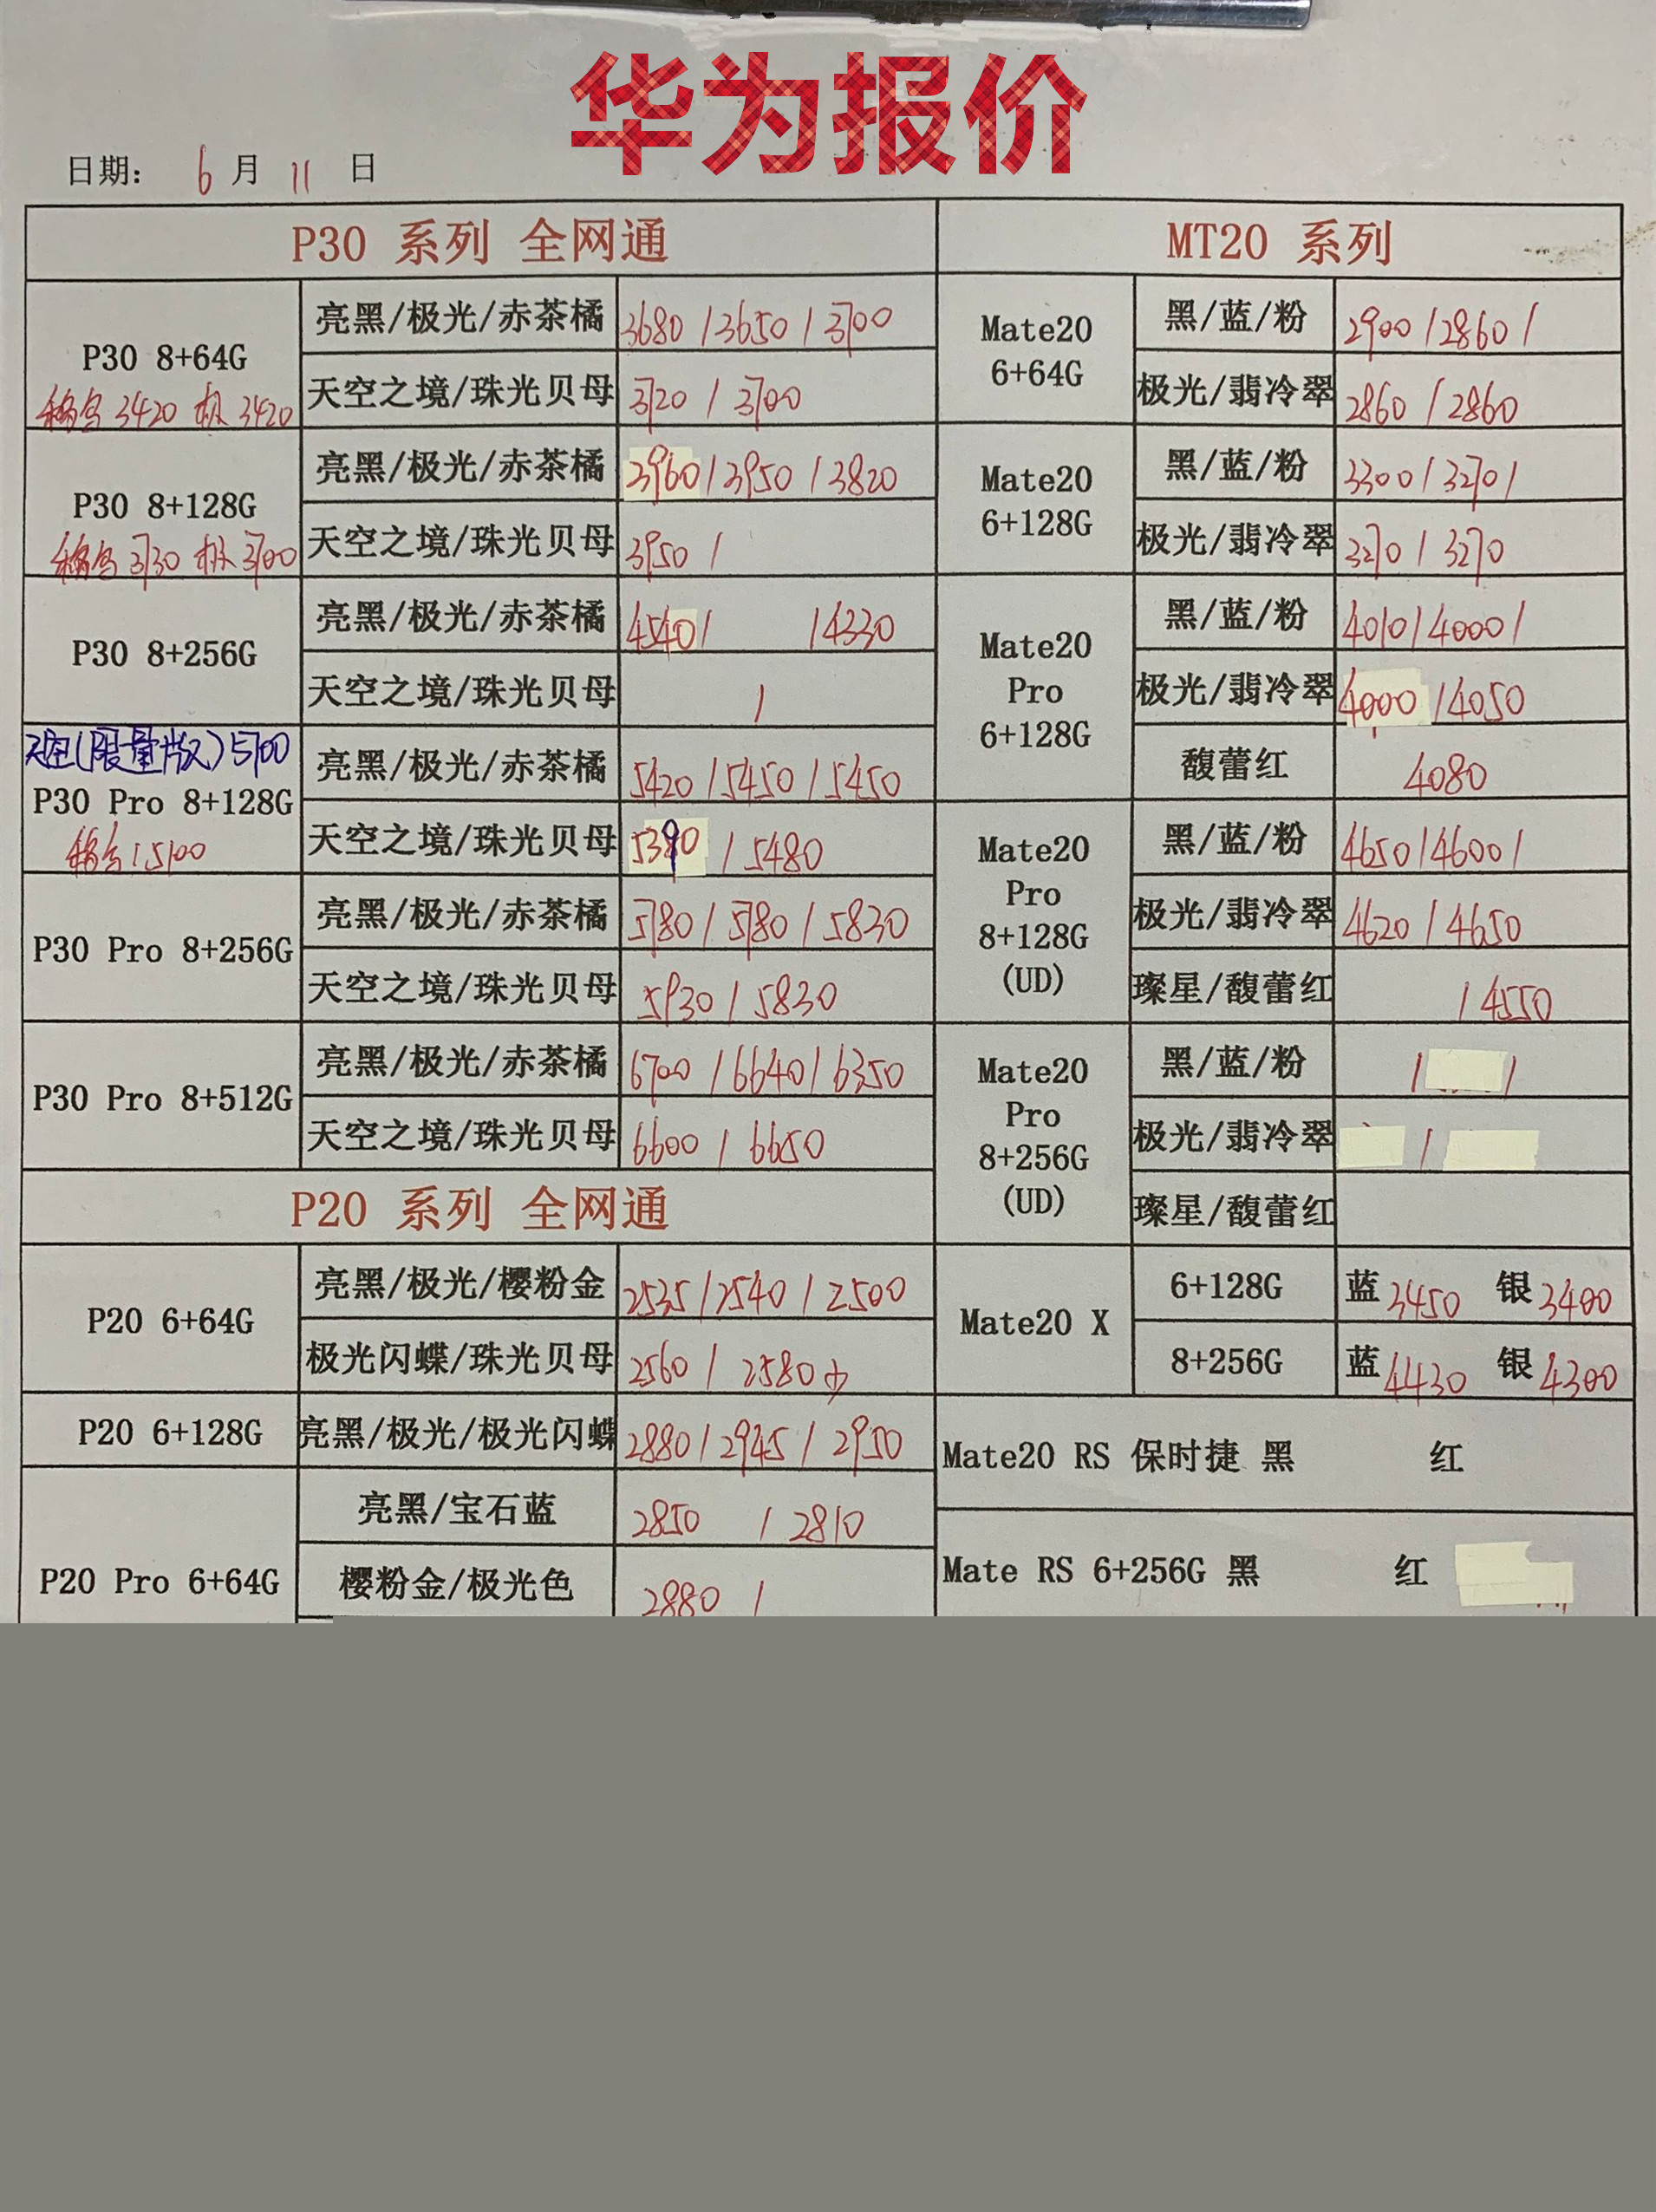 华为报价
日期： 6 月 11 日
P30 系列 全网通
P30 8+64G
3420 极 3420
亮黑/极光/赤茶橘 3680 / 3650 / 3700
天空之境/珠光贝母 3720 / 3700
P30 8+128G
3730 极 3700
亮黑/极光/赤茶橘 3960 / 3950 / 3820
天空之境/珠光贝母 3950 /
P30 8+256G
亮黑/极光/赤茶橘 4540 / / 4330
天空之境/珠光贝母 /
天空(限量版) 5700
P30 Pro 8+128G
5100
亮黑/极光/赤茶橘 5420 / 5450 / 5450
天空之境/珠光贝母 / 5480
P30 Pro 8+256G
亮黑/极光/赤茶橘 5780 / 5780 / 5830
天空之境/珠光贝母 5930 / 5830
P30 Pro 8+512G
亮黑/极光/赤茶橘 6700 / 6640 / 6350
天空之境/珠光贝母 6600 / 6650
P20 系列 全网通
P20 6+64G
亮黑/极光/樱粉金 2535 / 2540 / 2500
极光闪蝶/珠光贝母 2560 / 2580
P20 6+128G
亮黑/极光/极光闪蝶 2880 / 2945 / 2950
P20 Pro 6+64G
亮黑/宝石蓝 2850 / 2810
樱粉金/极光色 2880 /
MT20 系列
Mate20
6+64G
黑/蓝/粉 2900 / 2860 /
极光/翡冷翠 2860 / 2860
Mate20
6+128G
黑/蓝/粉 3300 / 3270 /
极光/翡冷翠 3270 / 3270
Mate20
Pro
6+128G
黑/蓝/粉 4010 / 4000 /
极光/翡冷翠 4000 / 4050
馥蕾红 4080
Mate20
Pro
8+128G
(UD)
黑/蓝/粉 4650 / 4600 /
极光/翡冷翠 4620 / 4650
璨星/馥蕾红 / 4550
Mate20
Pro
8+256G
(UD)
黑/蓝/粉 / /
极光/翡冷翠 /
璨星/馥蕾红
Mate20 X
6+128G 蓝 3450 银 3400
8+256G 蓝 4430 银 4300
Mate20 RS 保时捷 黑 红
Mate RS 6+256G 黑 红